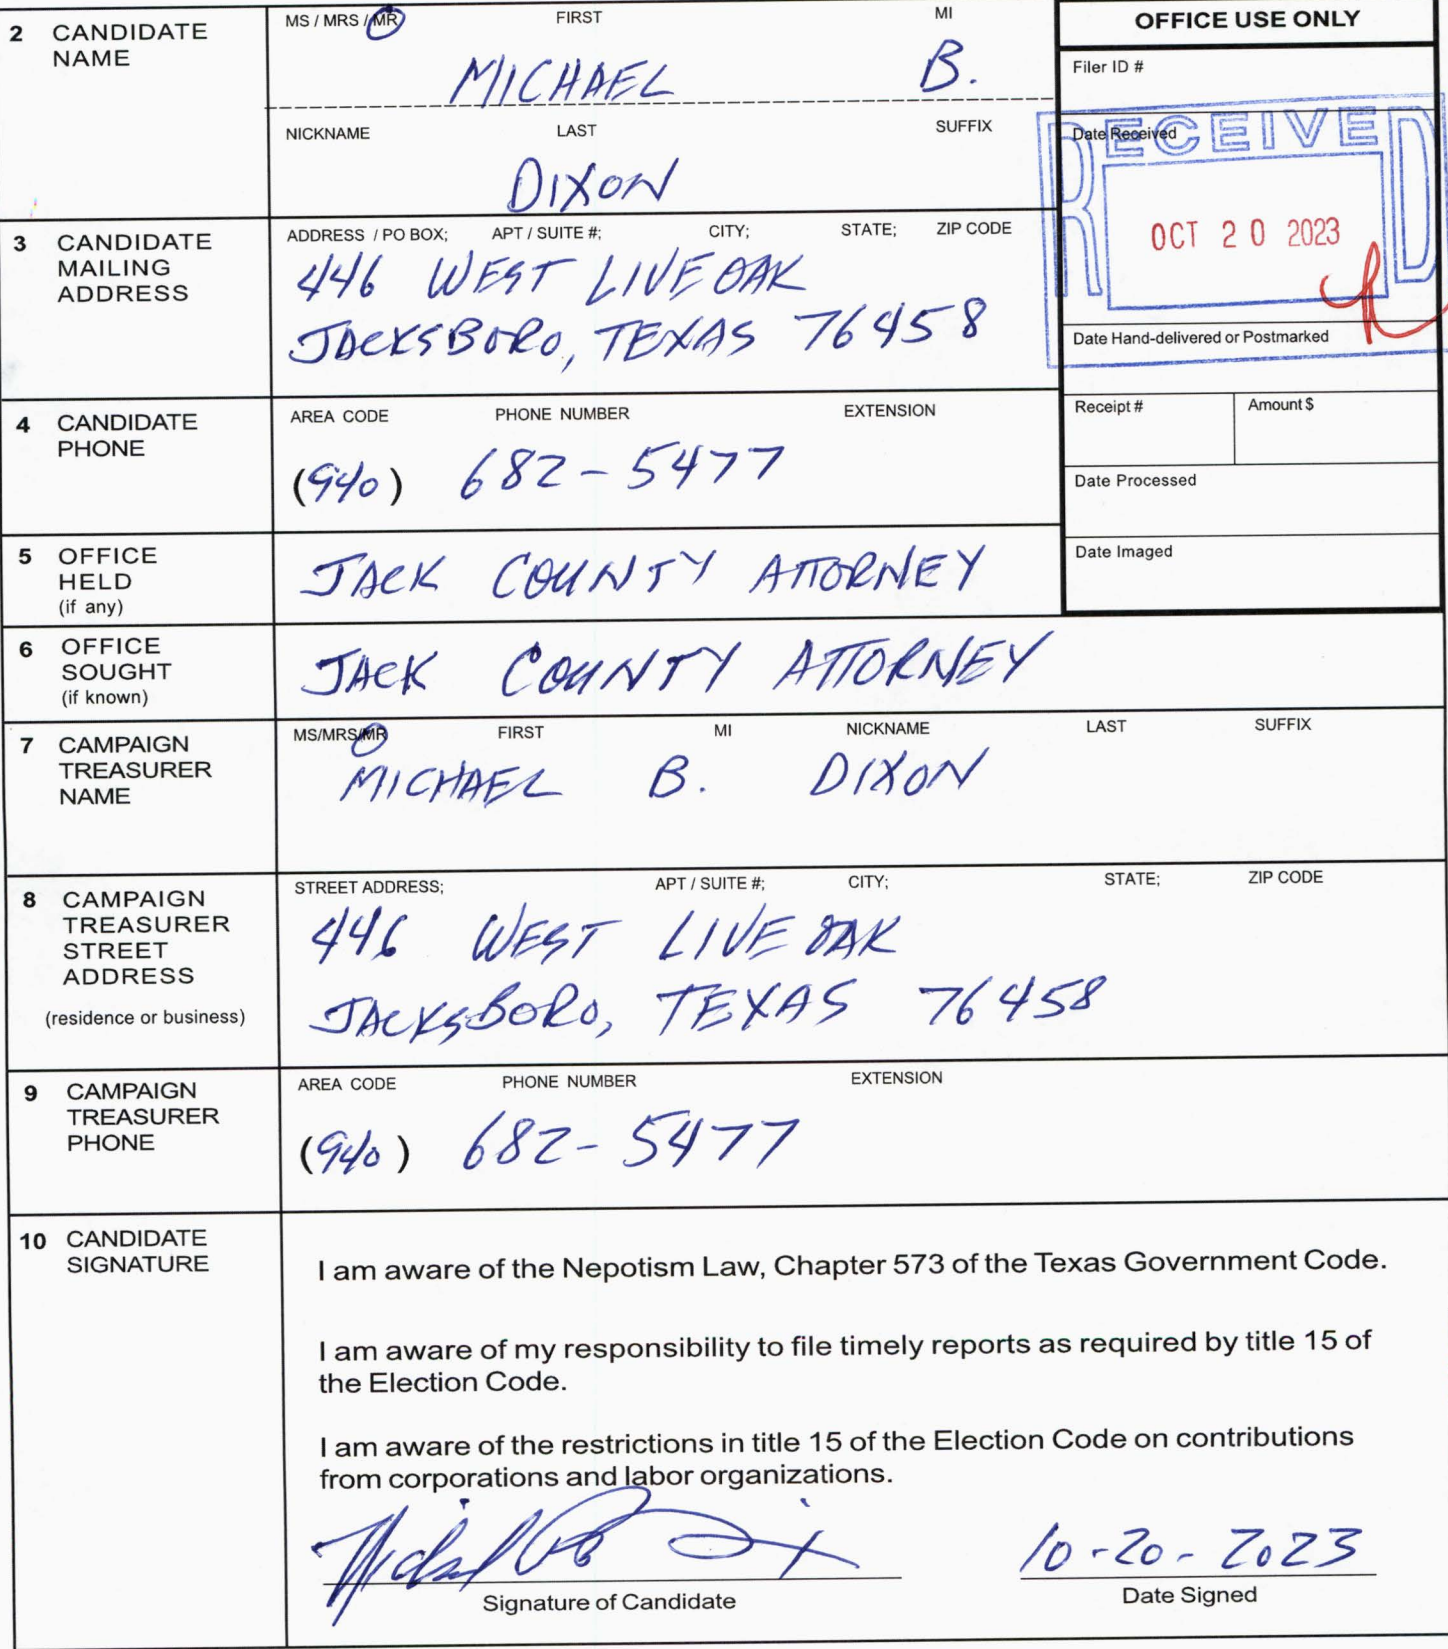 2 CANDIDATE NAME
MS / MRS / MR FIRST MI
MICHAEL B.
NICKNAME LAST SUFFIX
DIXON
OFFICE USE ONLY
Filer ID #
Date Received
RECEIVED
OCT 20 2023
Date Hand-delivered or Postmarked
Receipt # Amount $
Date Processed
Date Imaged
3 CANDIDATE MAILING ADDRESS
ADDRESS / PO BOX; APT / SUITE #; CITY; STATE; ZIP CODE
446 WEST LIVE OAK
JACKSBORO, TEXAS 76458
4 CANDIDATE PHONE
AREA CODE PHONE NUMBER EXTENSION
(940) 682-5477
5 OFFICE HELD (if any)
JACK COUNTY ATTORNEY
6 OFFICE SOUGHT (if known)
JACK COUNTY ATTORNEY
7 CAMPAIGN TREASURER NAME
MS/MRS/MR FIRST MI NICKNAME LAST SUFFIX
MICHAEL B. DIXON
8 CAMPAIGN TREASURER STREET ADDRESS (residence or business)
STREET ADDRESS; APT / SUITE #; CITY; STATE; ZIP CODE
446 WEST LIVE OAK
JACKSBORO, TEXAS 76458
9 CAMPAIGN TREASURER PHONE
AREA CODE PHONE NUMBER EXTENSION
(940) 682-5477
10 CANDIDATE SIGNATURE
I am aware of the Nepotism Law, Chapter 573 of the Texas Government Code.
I am aware of my responsibility to file timely reports as required by title 15 of
the Election Code.
I am aware of the restrictions in title 15 of the Election Code on contributions
from corporations and labor organizations.
10-20-2023
Signature of Candidate Date Signed